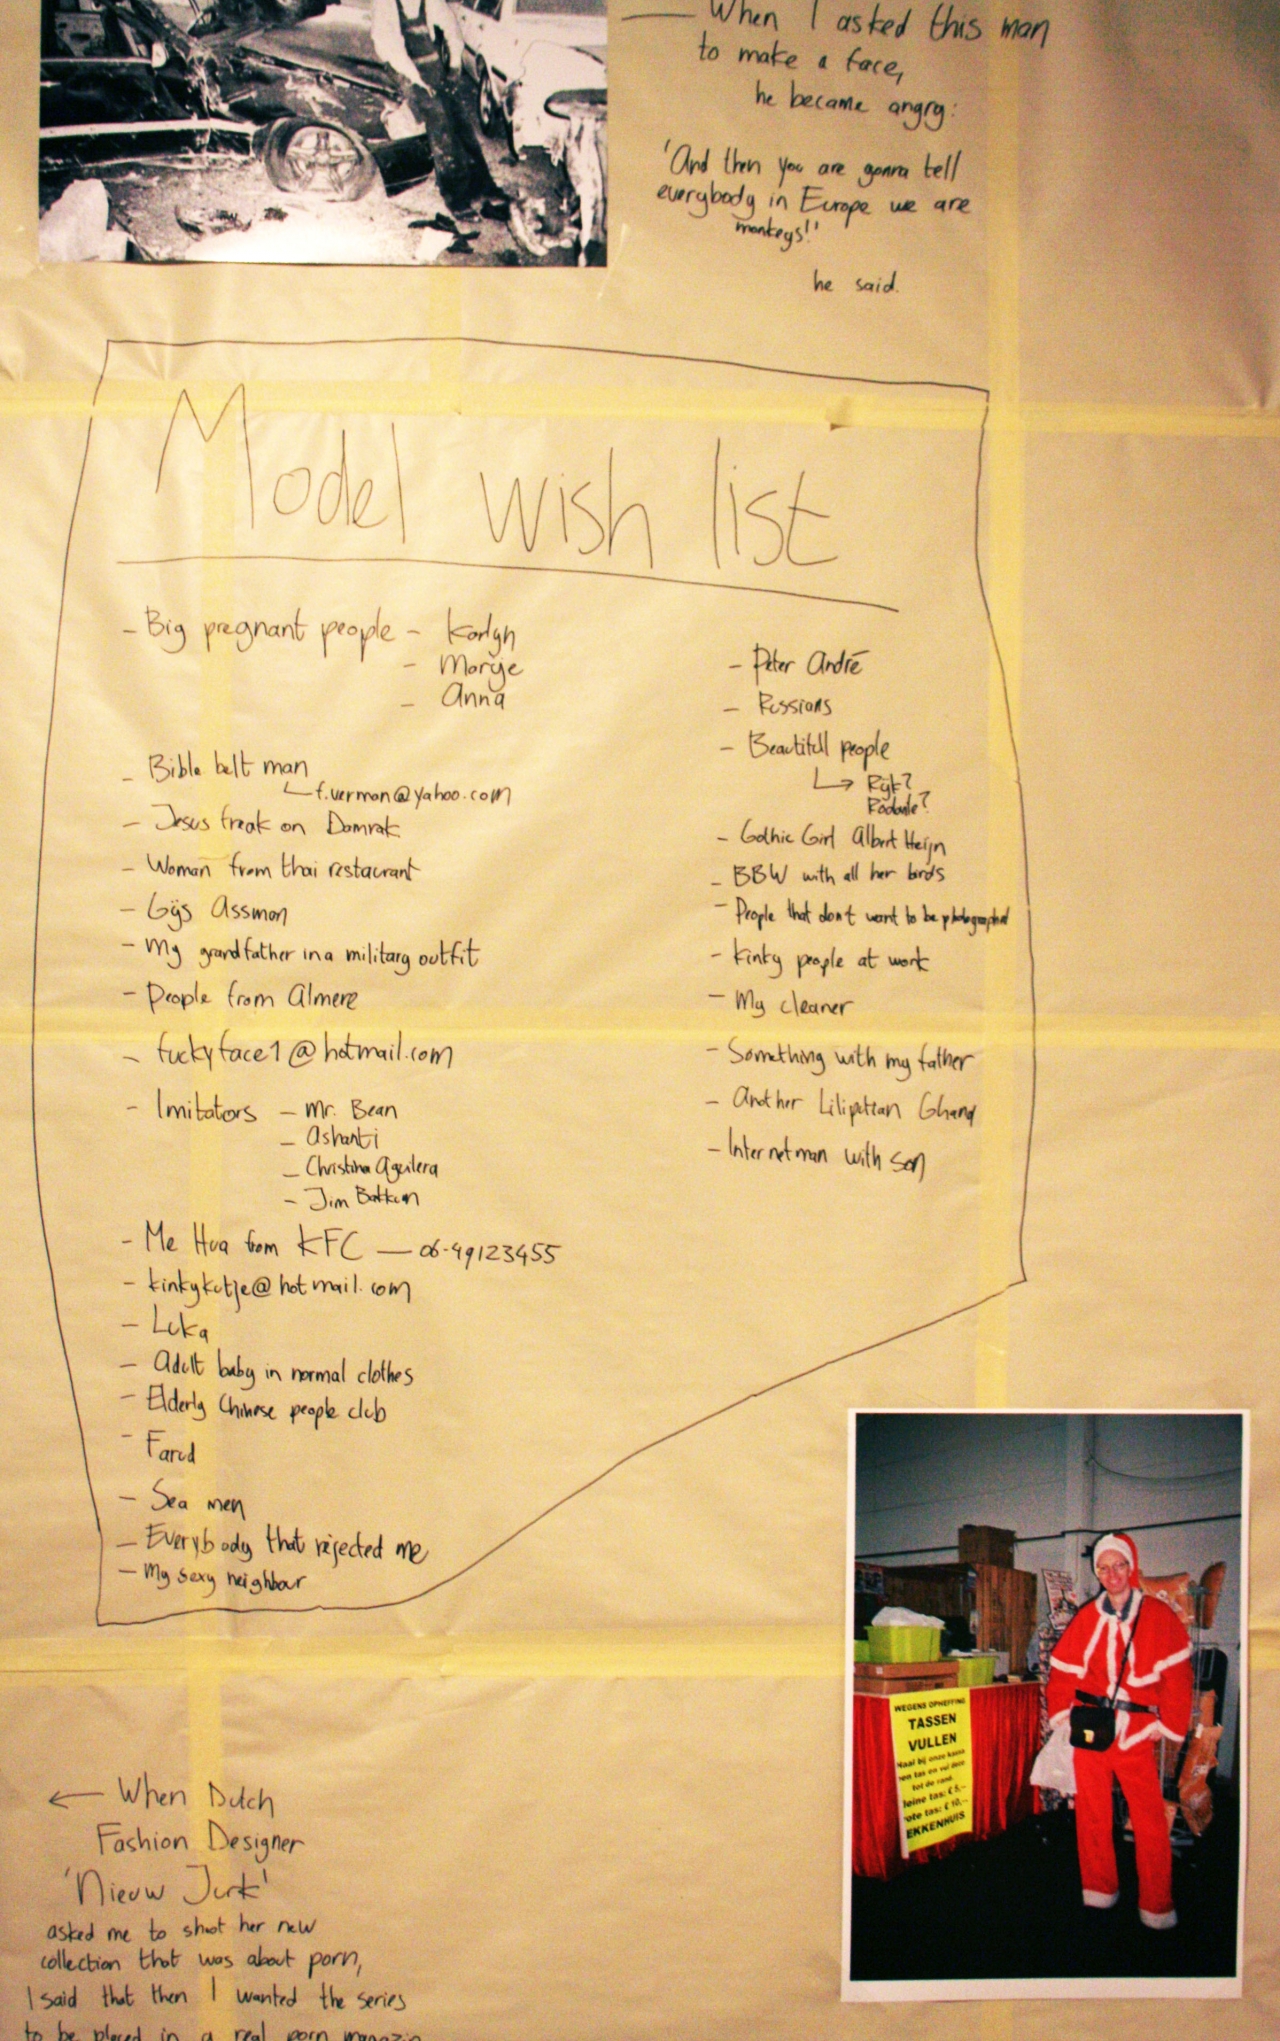 When I asked this man
to make a face,
he became angry:
'And then you are gonna tell
everybody in Europe we are
monkeys!'
he said.
Model wish list
- Big pregnant people - Karlyn
- Marije
- Anna
- Bible belt man
f.verman@yahoo.com
- Jesus freak on Damrak
- Woman from thai restaurant
- Gijs Assman
- My grandfather in a military outfit
- People from Almere
- fuckyface1@hotmail.com
- Imitators - Mr. Bean
- Ashanti
- Christina Aguilera
- Jim
- Me Hua from KFC — 06-49123455
- kinkykutje@hotmail.com
- Luka
- Adult baby in normal clothes
- Elderly Chinese people club
- Farud
- Sea men
- Everybody that rejected me
- My sexy neighbour
- Peter André
- Russians
- Beautifull people
Rijk?
- Gothic Girl Albert Heijn
- BBW with all her birds
- People that don't want to be photographed
- Kinky people at work
- My cleaner
- Something with my father
- Another Liliputian Ghana
- Internetman with son
WEGENS OPHEFFING
TASSEN
VULLEN
Haal bij onze kassa
een tas en vul deze
tot de rand.
leine tas: € 5,-
ote tas: € 10,-
EKKENHUIS
← When Dutch
Fashion Designer
'Nieuw Jurk'
asked me to shoot her new
collection that was about porn,
I said that then I wanted the series
to be placed in a real porn magazin